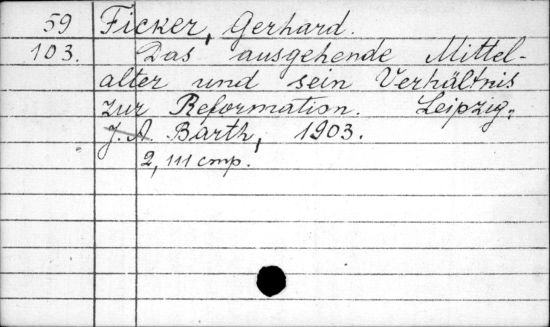 59 Ficker, Gerhard.
103. Das ausgehende Mittel-
alter und sein Verhältnis
zur Reformation. Leipzig:
J. A. Barth, 1903.
2, 111 стр.